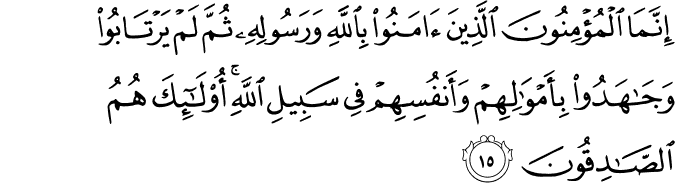 إِنَّمَا ٱلْمُؤْمِنُونَ ٱلَّذِينَ ءَامَنُوا۟ بِٱللَّهِ وَرَسُولِهِۦ ثُمَّ لَمْ يَرْتَابُوا۟
وَجَـٰهَدُوا۟ بِأَمْوَٰلِهِمْ وَأَنفُسِهِمْ فِى سَبِيلِ ٱللَّهِ ۚ أُو۟لَـٰٓئِكَ هُمُ
ٱلصَّـٰدِقُونَ ١٥